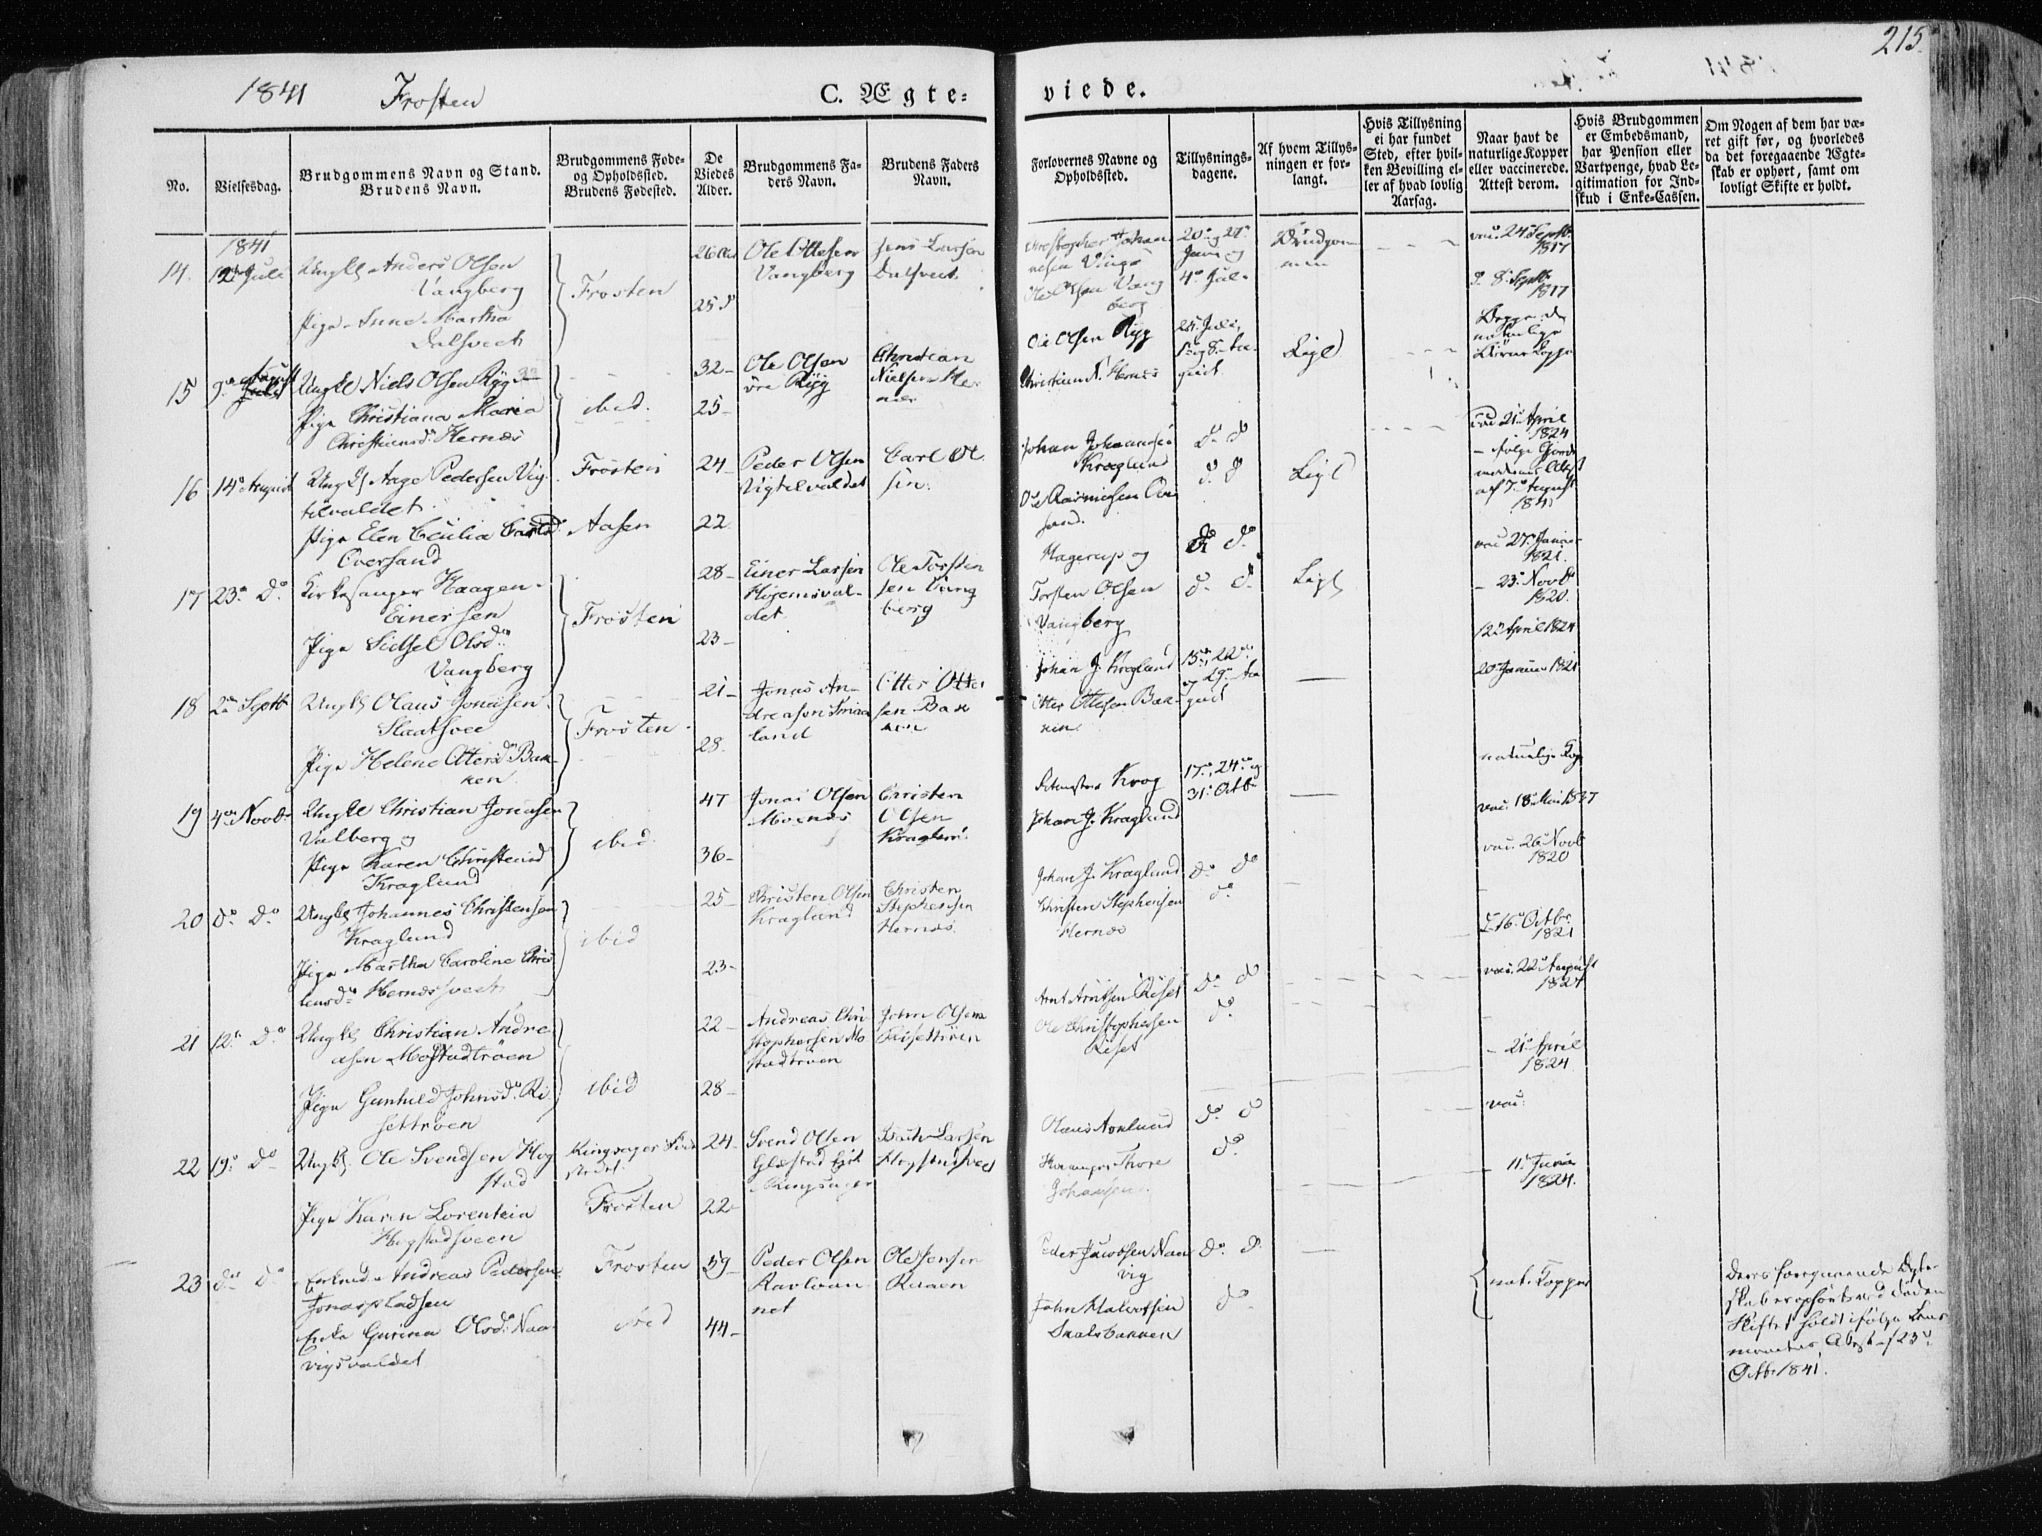 215.
1841 Frosten
C. Ægte- viede.
No.
Vielsesdag.
Brudgommens Navn og Stand.
Brudens Navn.
Brudgommens Føde-
og Opholdssted.
Brudens Fødested.
De
Viedes
Alder.
Brudgommens Fa-
ders Navn.
Brudens Faders
Navn.
Forlovernes Navne og
Opholdssted.
Tillysnings-
dagene.
Af hvem Tillys-
ningen er for-
langt.
Hvis Tillysning
ei har fundet
Sted, efter hvil-
ken Bevilling el-
ler af hvad lovlig
Aarsag.
Naar havt de
naturlige Kopper
eller vaccinerede.
Attest derom.
Hvis Brudgommen
er Embedsmand,
har Pension eller
Vartpenge, hvad Le-
gitimation for Ind-
skud i Enke-Cassen.
Om Nogen af dem har væ-
ret gift før, og hvorledes
da det foregaaende Ægte-
skab er ophørt, samt om
lovligt Skifte er holdt.
1841
14. 12 Juli
Ungkl Anders Olsen
Vangberg
Pige Anne Martha
Dalsveet
Frosten
26
25
Ole Ottesen
Vangberg
Jens Larsen
Dalsveet
Christopher Johan
nesen
Ole Olsen Vang
berg
20 27
Juni og
4 Juli
Brudgom
men
vac. 24 Septb
1817
8 Septb
1817
15 9 August
Ungkl Niels Olsen Ryg
Pige Christiana Maria
Christiansd: Hernæs
ibid.
32
25
Ole Olsen
Ryg
Christian
Nielsen Her
næs
Ole Olsen Ryg
Christian N. Hernæs
25 Juli,
1 og 8 Au
gust
Ligl
Begge de
naturlige
Kopp
16 14 August
Ungkl Aage Pedersen Vig
tilvaldet
Pige Elen Cecilia Carlsd
Oversand
Frosten
Aasen
24
22
Peder Olsen
Vigtilvaldet
Carl Ol
sen.
Johan Johannesen
Kraglund
Ole Rasmussen Ov
sand.
do do
do do
Ligl
vac 21 April
1824
ifølge Gjord
moderens Attest
af 7 August
1841
17 23 Do
Kirkesanger Haagen
Einersen
Pige Sidsel Olsdr
Vangberg
Frosten
28
23
Einer Larsen
Hojemsval-
det
Ole Torsten
sen Vang
berg
Hagerup og
Torsten Olsen
Vangberg
do do
do do
Ligl
vac 27 Januar
1821
23 Novb
1820.
12 April 1824
18 2 Septb
Ungkl Olaus Jonasen
Slaatsvee
Pige Helene Ottersdr Bak-
ken
Frosten
21
28
Jonas An-
dreasen
land
Otter Otter
sen Bak
ken
Johan J. Kraglund
Otter Ottesen Bak-
ken
15, 22
og 29 Au
gust
20 Januar 1821
naturlige Kop
19 4 Novb
Ungkl Christian Jonasen
Valberg og
Pige Karen Christensd
Kraglund
ibid
47
36
Jonas Olsen
Moenæs
Christen
Olsen
Kraglund
Krog
Johan J. Kraglund
17, 24 og
31 Octb
vac. 18 Mai 1837
vac. 26 Novb
1820
20 do Do
Ungkl Johannes Christensen
Kraglund
Pige Martha Caroline Chris
tensdr Hernæsveet
ibid
25
23
Christen Olsen
Kraglund
Christen
Stephensen
Hernæs
Johan J. Kraglund
Christen Stephensen
Hernæs
do do
do
16 Octbr
1821
vac. 22 August
1824
21 12 Do
Ungkl Christian Andre
asen Mostadtrøen
Pige Gunhild Johnsdr Ri
settrøen
ibid
22
28
Andreas Chri
stophersen Mo
stadtrøen
John Olsen
Risettrøen
Arnt Arntsen Riset
Ole Christophersen
Riset
do do
do
21 April
1824
vac:
22 19 Do
Ungkl. Ole Svendsen Hog
stad
Pige Karen Lorentein
Hogstadsveen
Ringsager
Frosten
24
22
Svend Olsen
Glæstad
Ringsager
Larsen
Hogstadsvee
Olaus Aaslund
Thore
Johansen
do do
do
11 Juni
1824.
23 do do
Enkmd. Andreas Pedersen
Jonaspladsen
Enke Gurina Olsdr Naa
vigsvaldet
Frosten
ibid
59
44
Peder Olsen
Ole Jensen
Peder Jacobsen Naa
vig
John Halvorsen
Skalsbakken
do do
do
nat. Kopper
Deres foregaaende Ægte
skab er ophørt ved Døden
Skiftet holdt ifølge Lens
mandens Attest af 23
Octbr 1841.